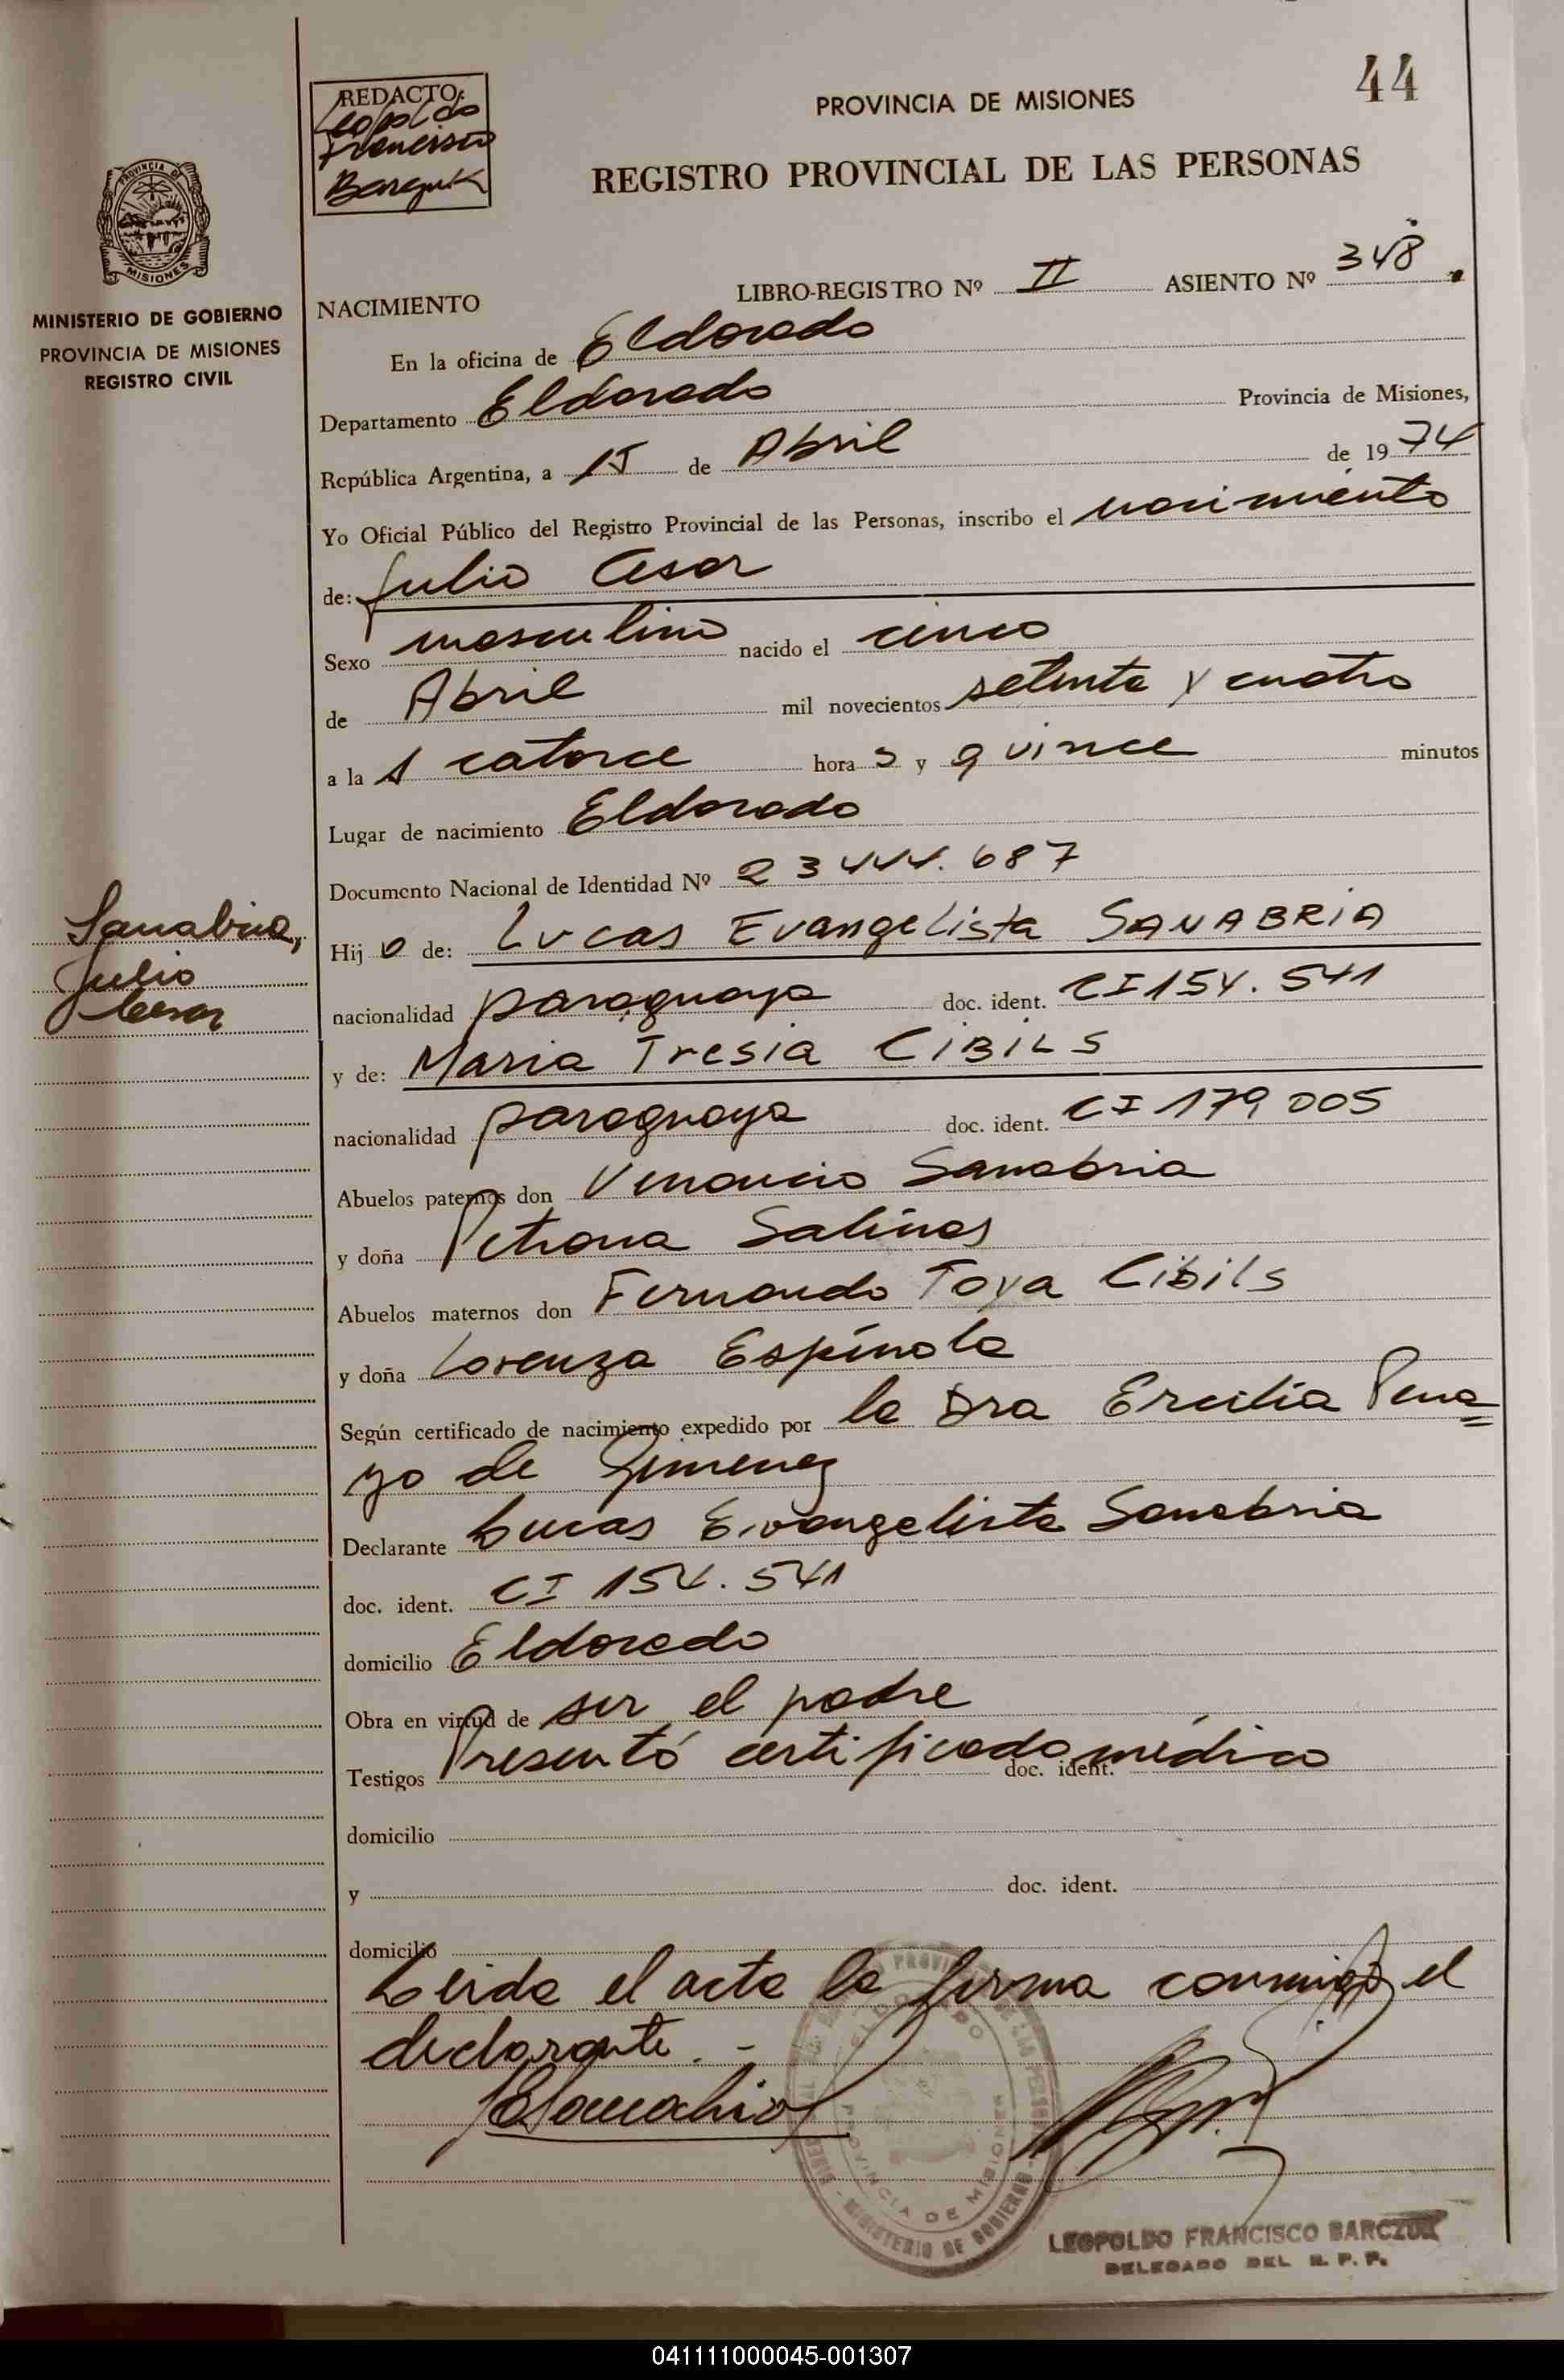 44
REDACTO:
Leopoldo
Francisco
Barczuk
PROVINCIA DE MISIONES
REGISTRO PROVINCIAL DE LAS PERSONAS
PROVINCIA DE
MISIONES
MINISTERIO DE GOBIERNO
PROVINCIA DE MISIONES
REGISTRO CIVIL
NACIMIENTO LIBRO-REGISTRO Nº II ASIENTO Nº 348
En la oficina de Eldorado
Departamento Eldorado Provincia de Misiones,
República Argentina, a 15 de Abril de 1974
Yo Oficial Público del Registro Provincial de las Personas, inscribo el nacimiento
de: Julio Cesar
Sexo masculino nacido el cinco
de Abril mil novecientos setenta y cuatro
a las catorce horas y quince minutos
Lugar de nacimiento Eldorado
Documento Nacional de Identidad Nº 23444.687
Sanabria,
Julio
Cesar
Hijo de: Lucas Evangelista SANABRIA
nacionalidad paraguaya doc. ident. CI 154.541
y de: Maria Tresia CIBILS
nacionalidad paraguaya doc. ident. CI 179005
Abuelos paternos don Venancio Sanabria
y doña Petrona Salinas
Abuelos maternos don Fernando Toya Cibils
y doña Lorenza Espínola
Según certificado de nacimiento expedido por la Dra Ercilia Pena=
yo de Gimenez
Declarante Lucas Evangelista Sanabria
doc. ident. CI 154.541
domicilio Eldorado
Obra en virtud de ser el padre
Testigos Presentó certificado médico doc. ident.
domicilio
y doc. ident.
domicilio
Leida el acta la firma conmigo el
declarante.-
ELDORADO
PROVINCIA DE MISIONES
MINISTERIO DE GOBIERNO
LEOPOLDO FRANCISCO BARCZUK
DELEGADO DEL R. P. P.
041111000045-001307